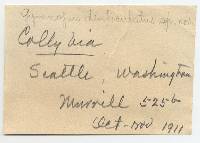 Gymnopus denticulatus sp. nov.
Collybia
Seattle, Washington
Murrill 5256
Oct-Nov 1911